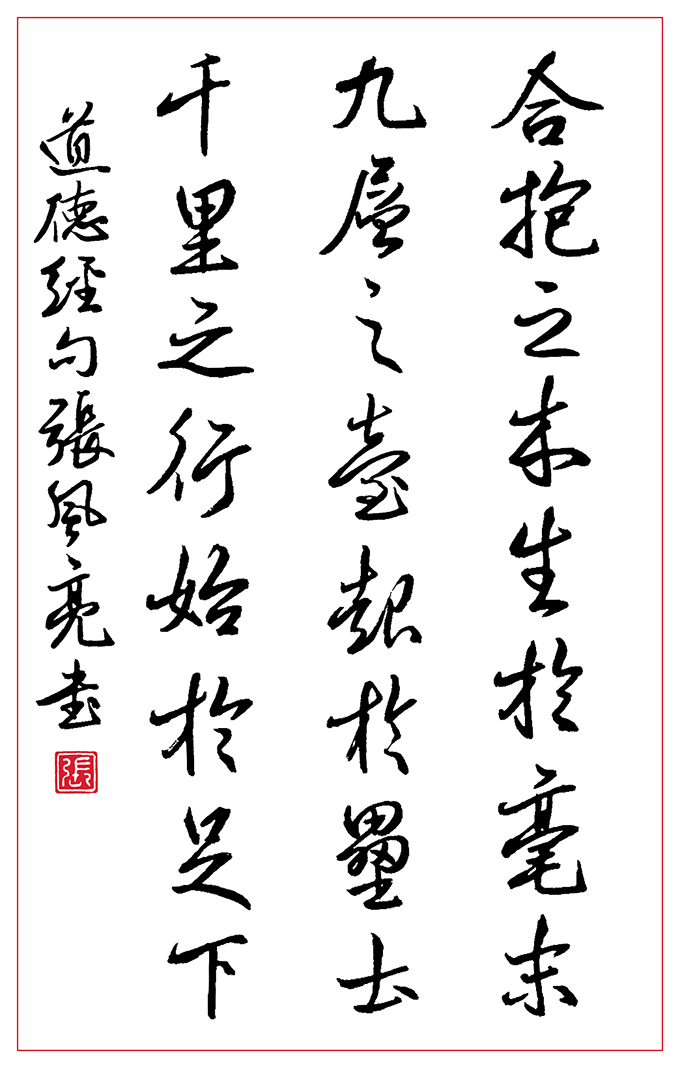 合抱之木生於毫末
九層之臺起於壘土
千里之行始於足下
道德經句張風亮書
張